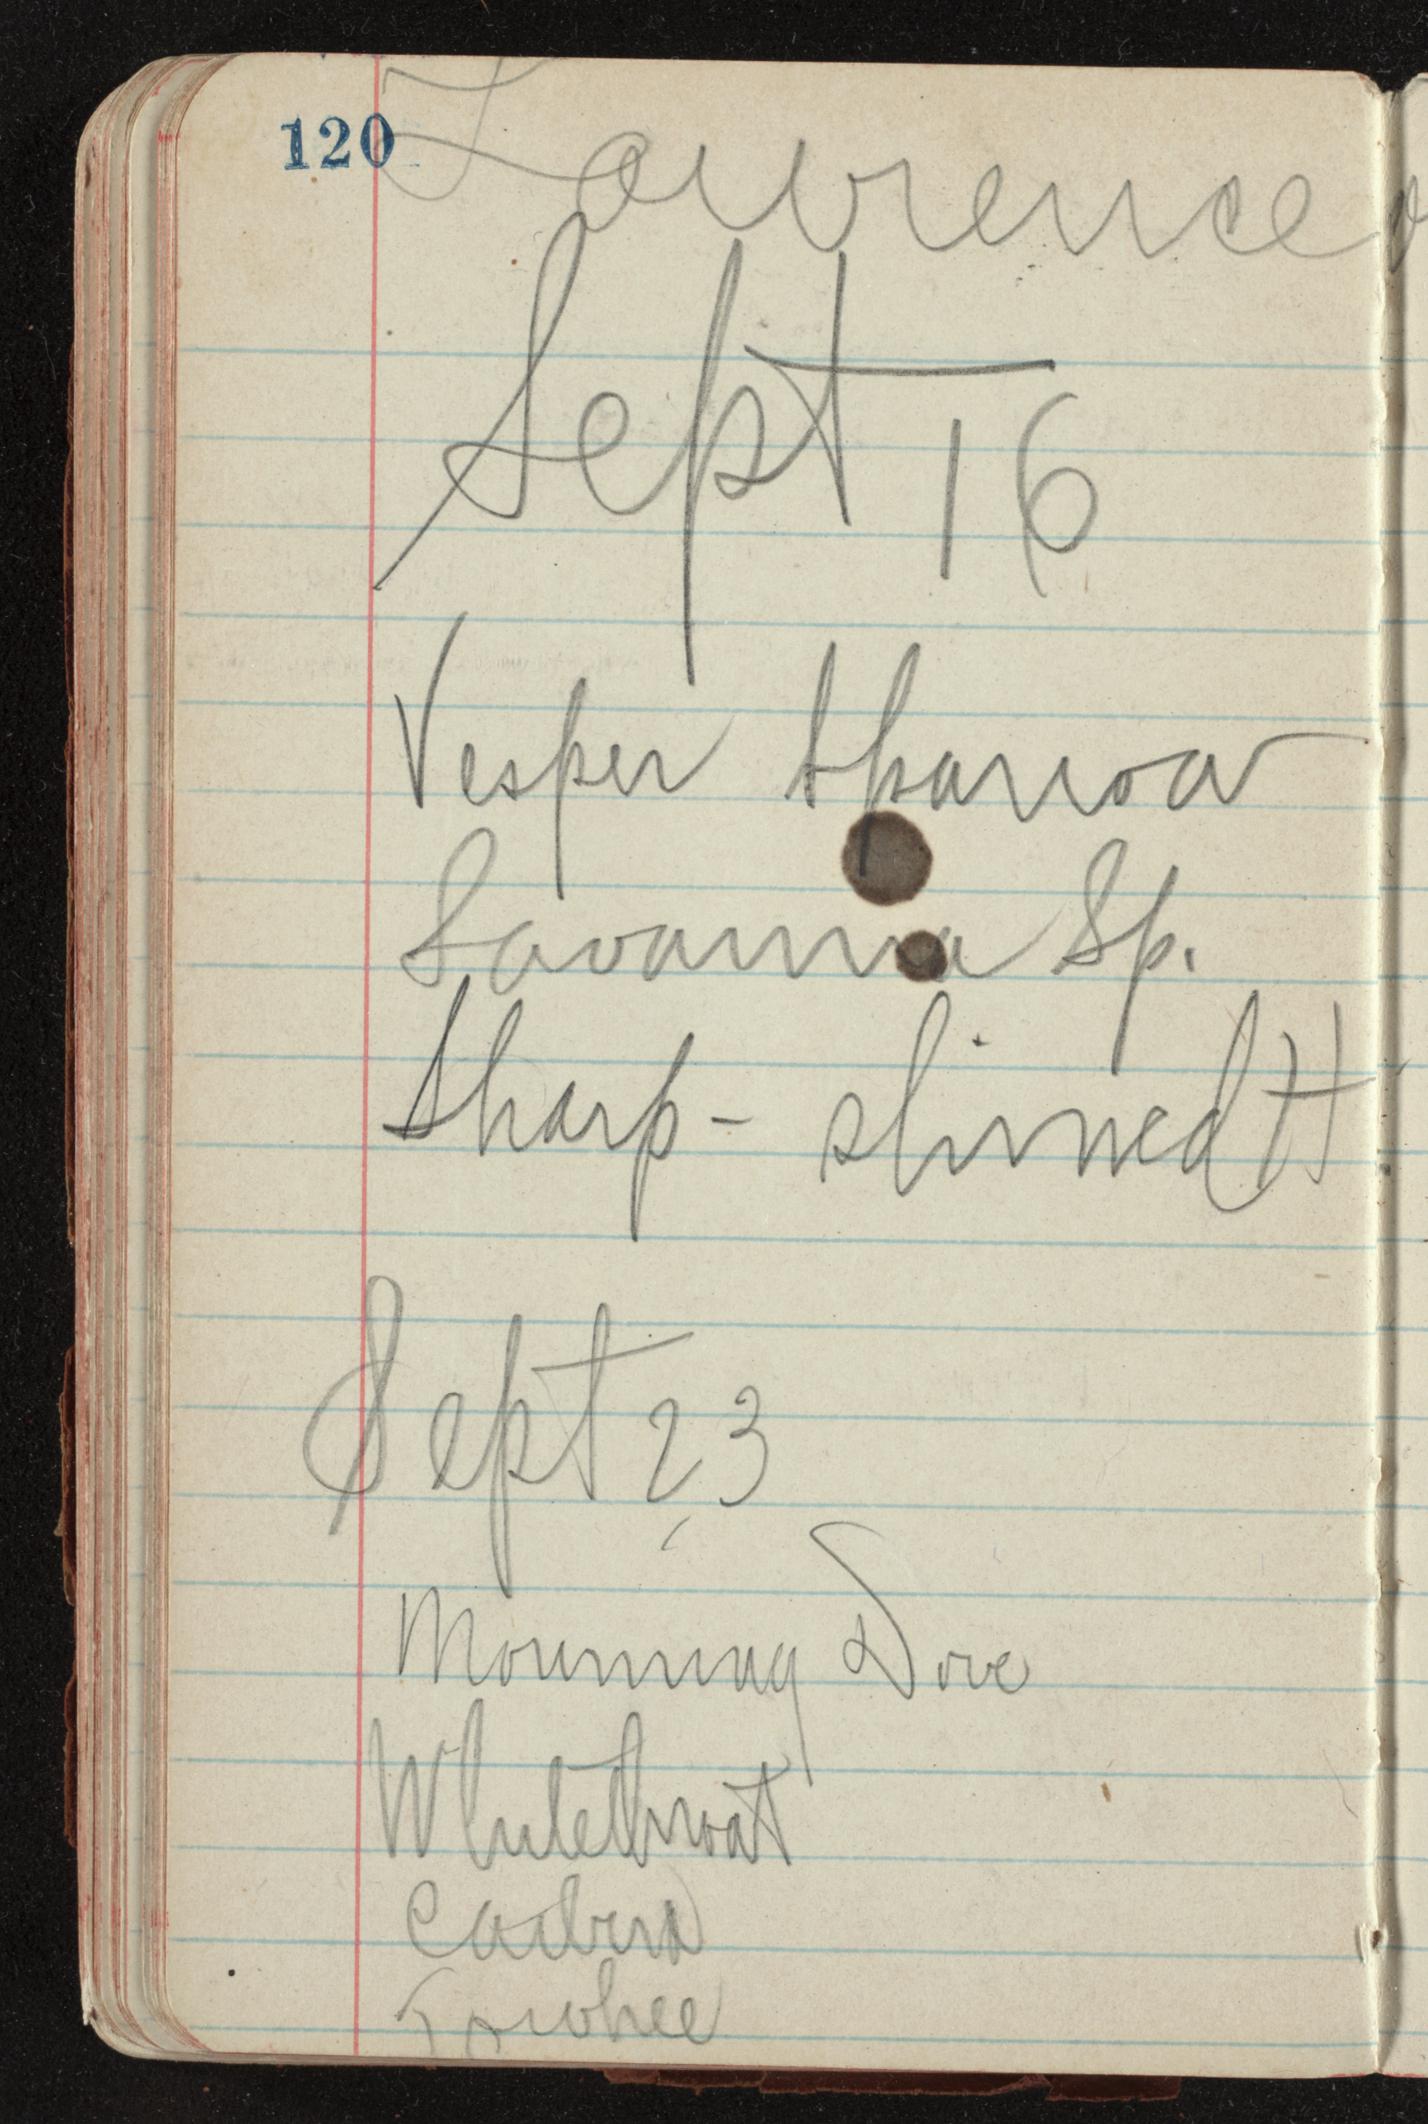 120
Lawrence
Sept 16
Vesper Sparrow
Savanna Sp.
Sharp-shinned H
Sept 23
Mourning Dove
Whitethroat
Catbird
Towhee